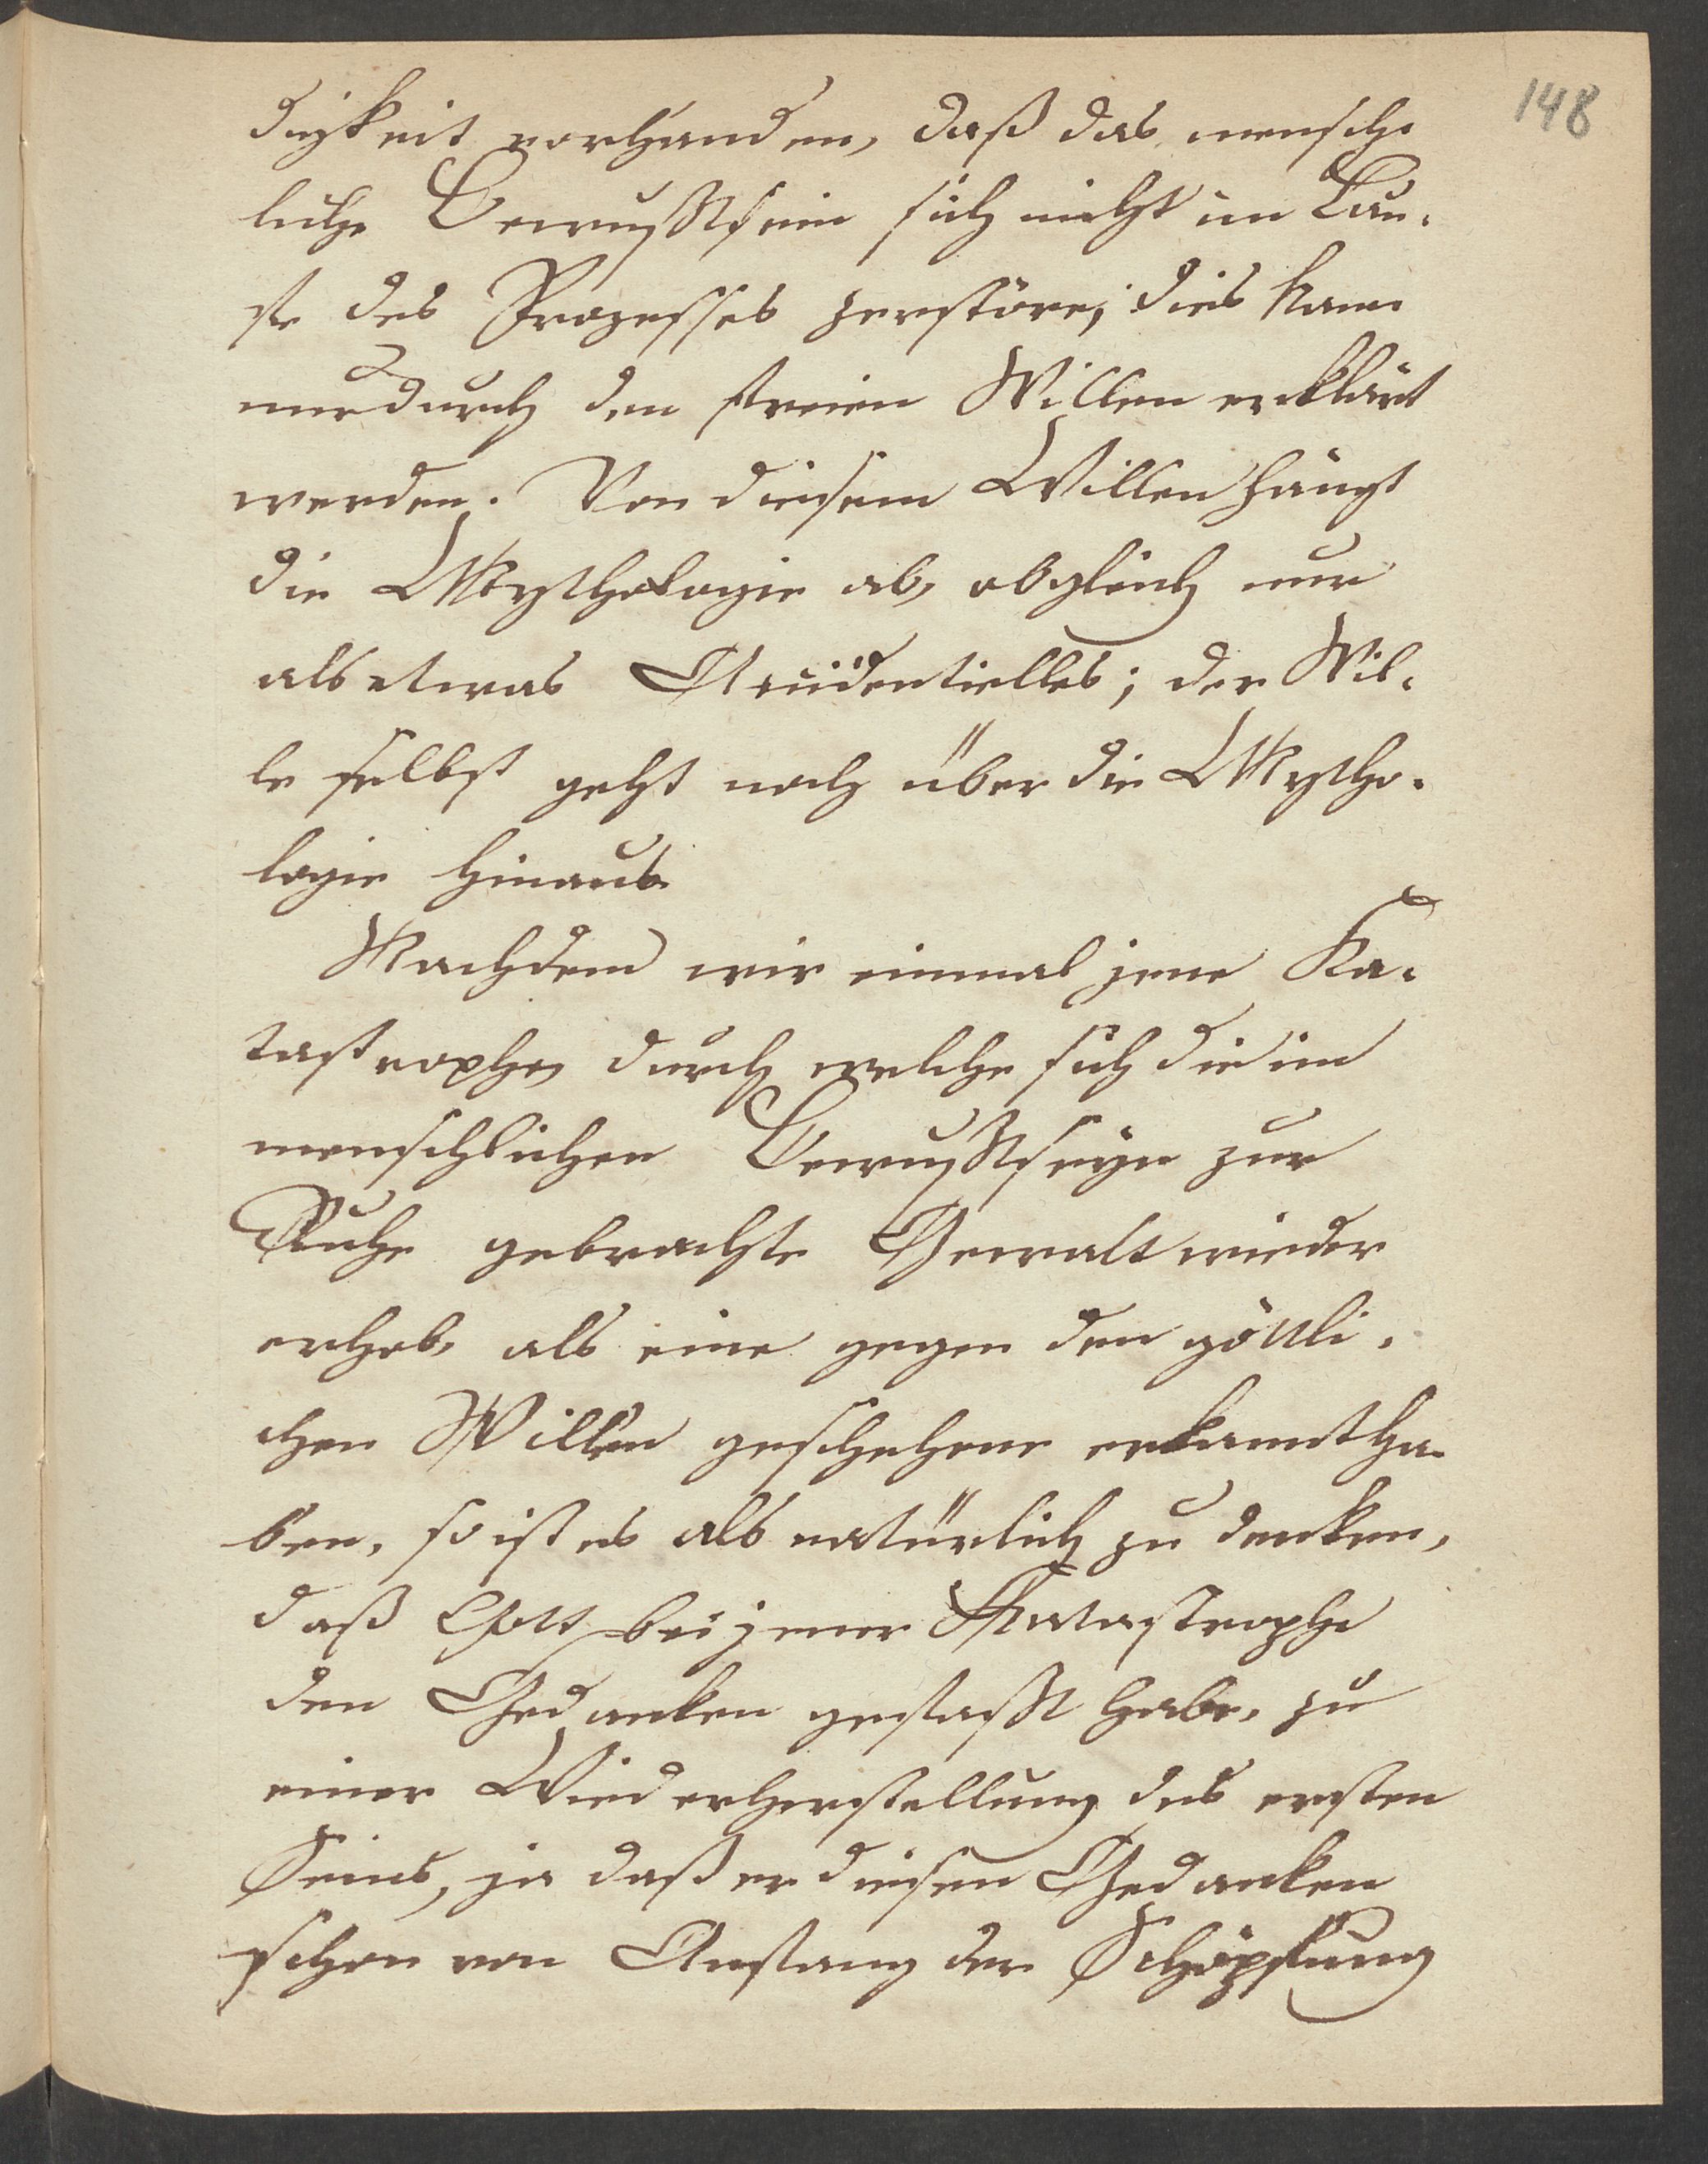 148
digkeit vorhanden, daß das mensch-
liche Bewußtsein sich nicht im Lau-
fe des Prozesses zerstöre; dies kann
nur durch den freien Willen erklärt
werden. Von diesem Willen hängt
die Mythologie ab, obgleich nur
als etwas Accidentielles; der Wil-
le selbst geht noch über die Mytho-
logie hinaus.
Nachdem wir einmal jene Ka-
tastrophe, durch welche sich die im
menschlichen Bewußtseyn zur
Ruhe gebrachte Gewalt wieder
erhob, als eine gegen den göttli-
chen Willen geschehene erkannt ha-
ben, so ist es als natürlich zu denken,
daß Gott bei jener Katastrophe
den Gedanken gefaßt habe, zu
einer Wiederherstellung des ersten
Seins, ja daß er diesen Gedanken
schon von Anfang der Schöpfung